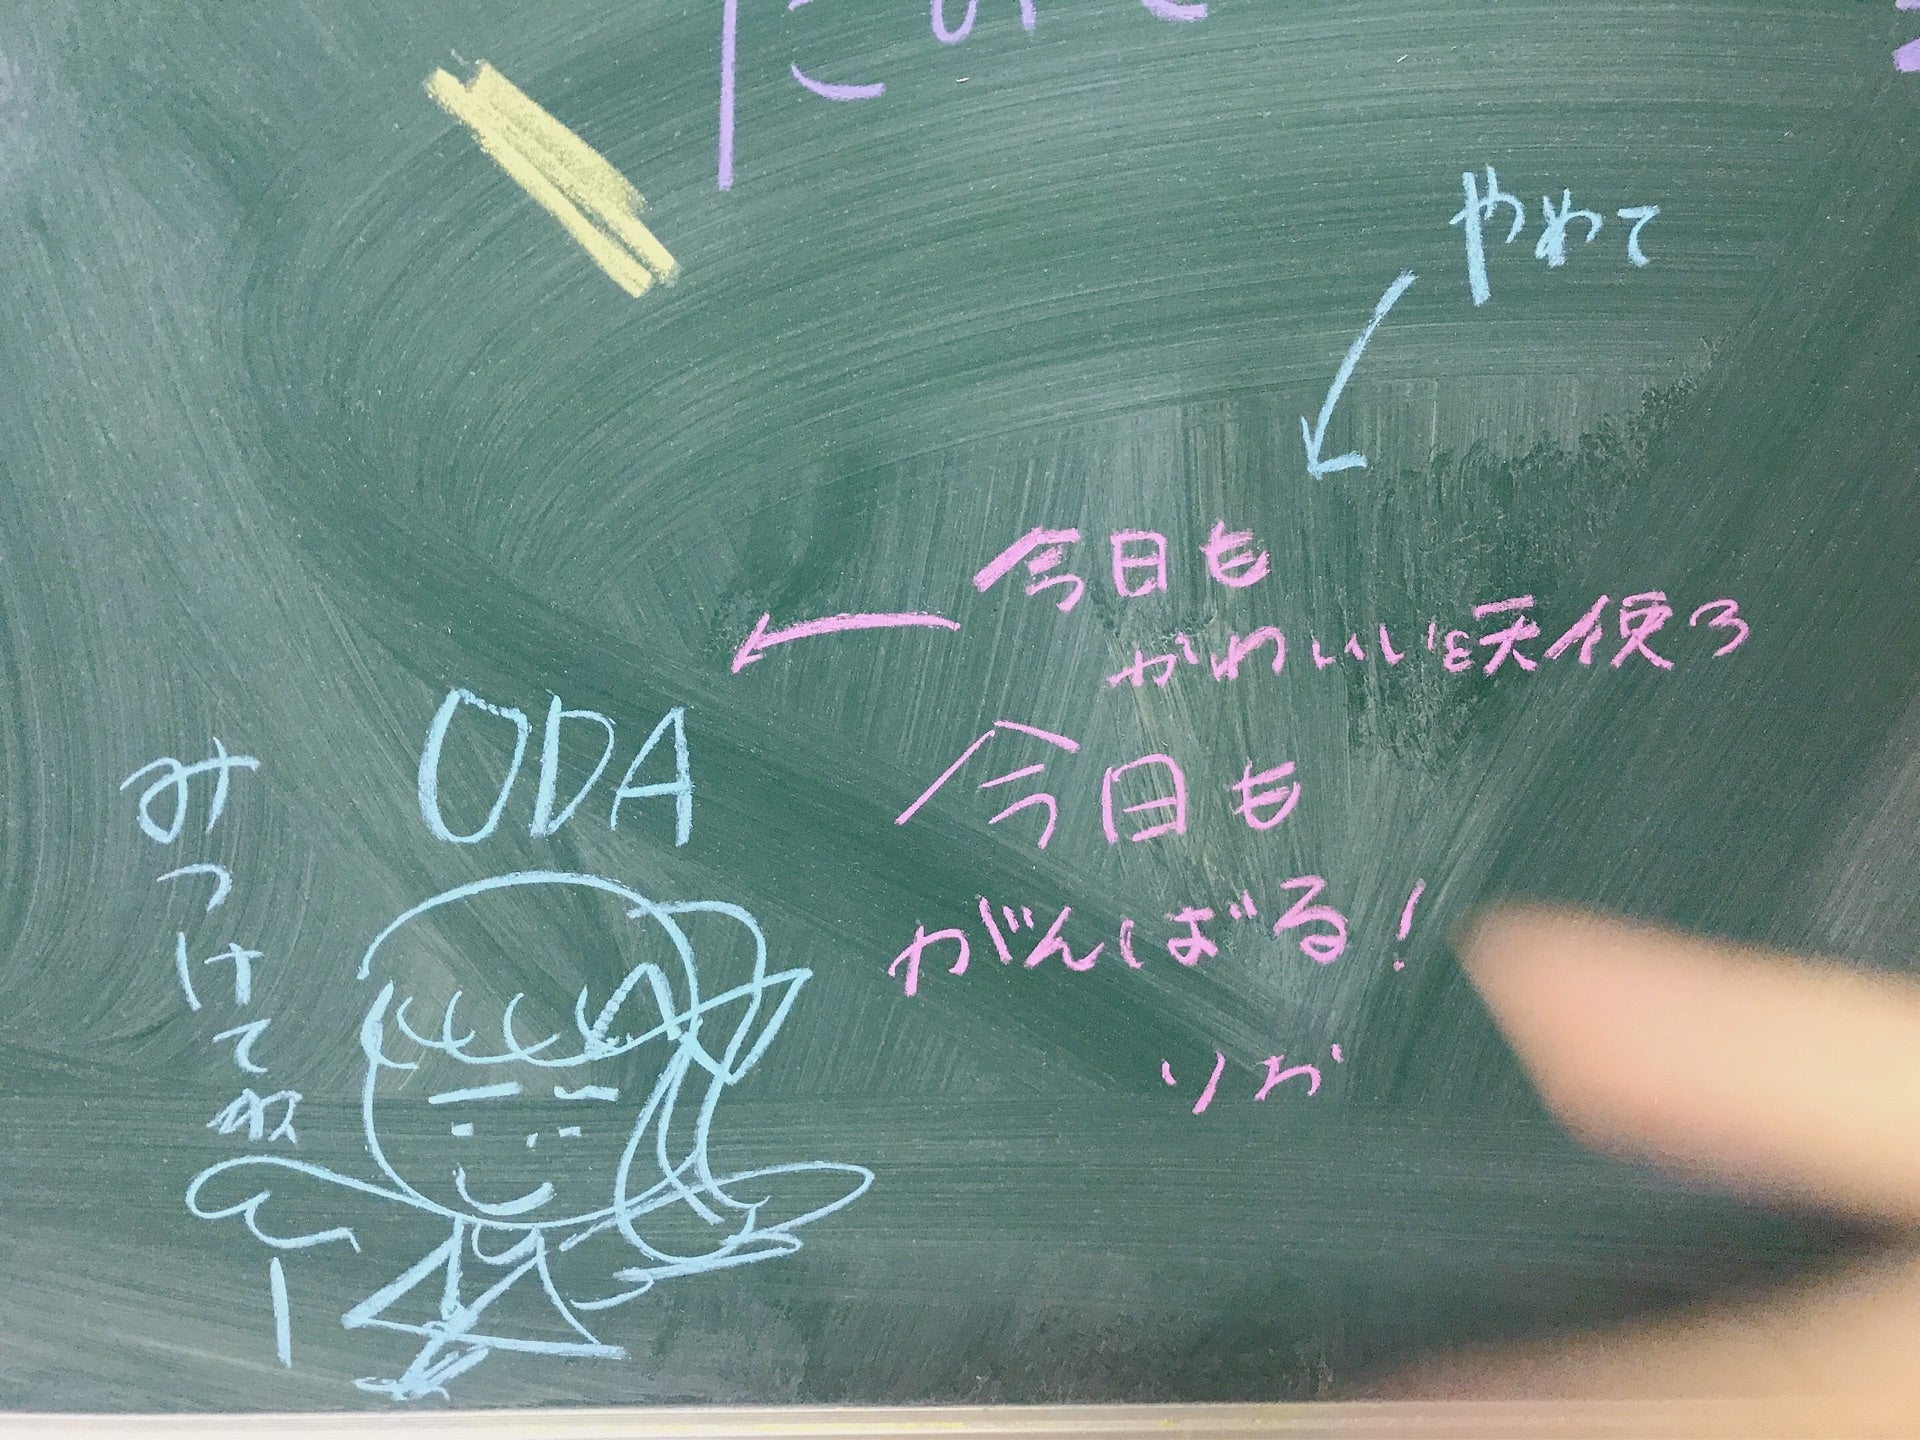 やめて
今日も
かわいいε天使з
ODA
今日も
がんばる！
りお
みつけてねー